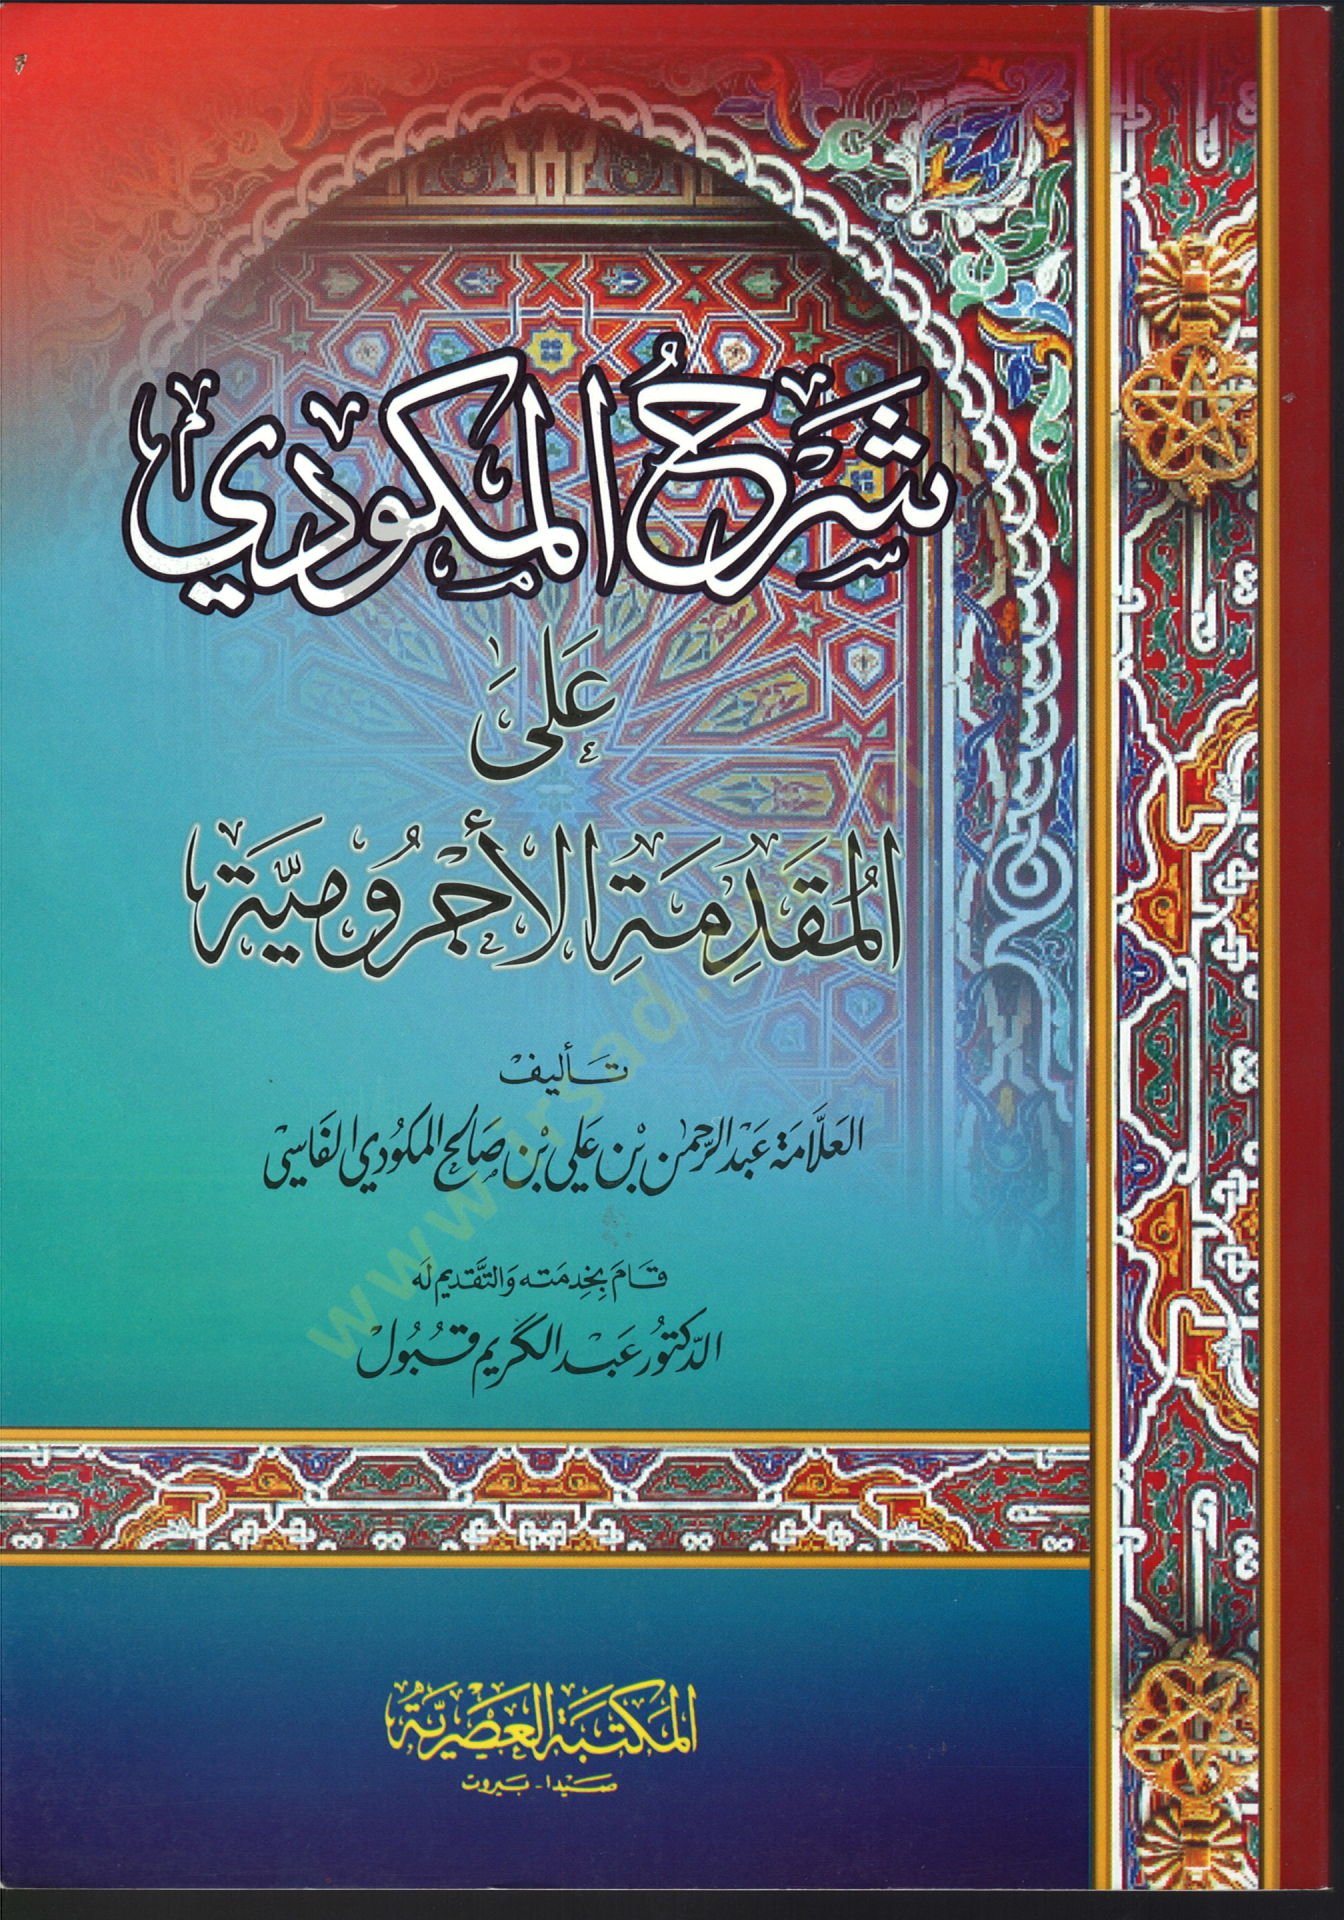 شَرْحُ المكودي
عَلَى
المُقَدِمَةِ الأَجْرُومِيَّة
تأليفْ
العَلَّامَة عَبْد الرَّحمٰن بْن عَلي بْن صَالح المكوُدي الفَاسيّ
قَامَ بِخِدمَته وَالتَّقديم لَه
الدّكتوُر عَبْد الكَريم قَبُولْ
المَكتبَة العَصْريَّة
صَيدا - بَيروت